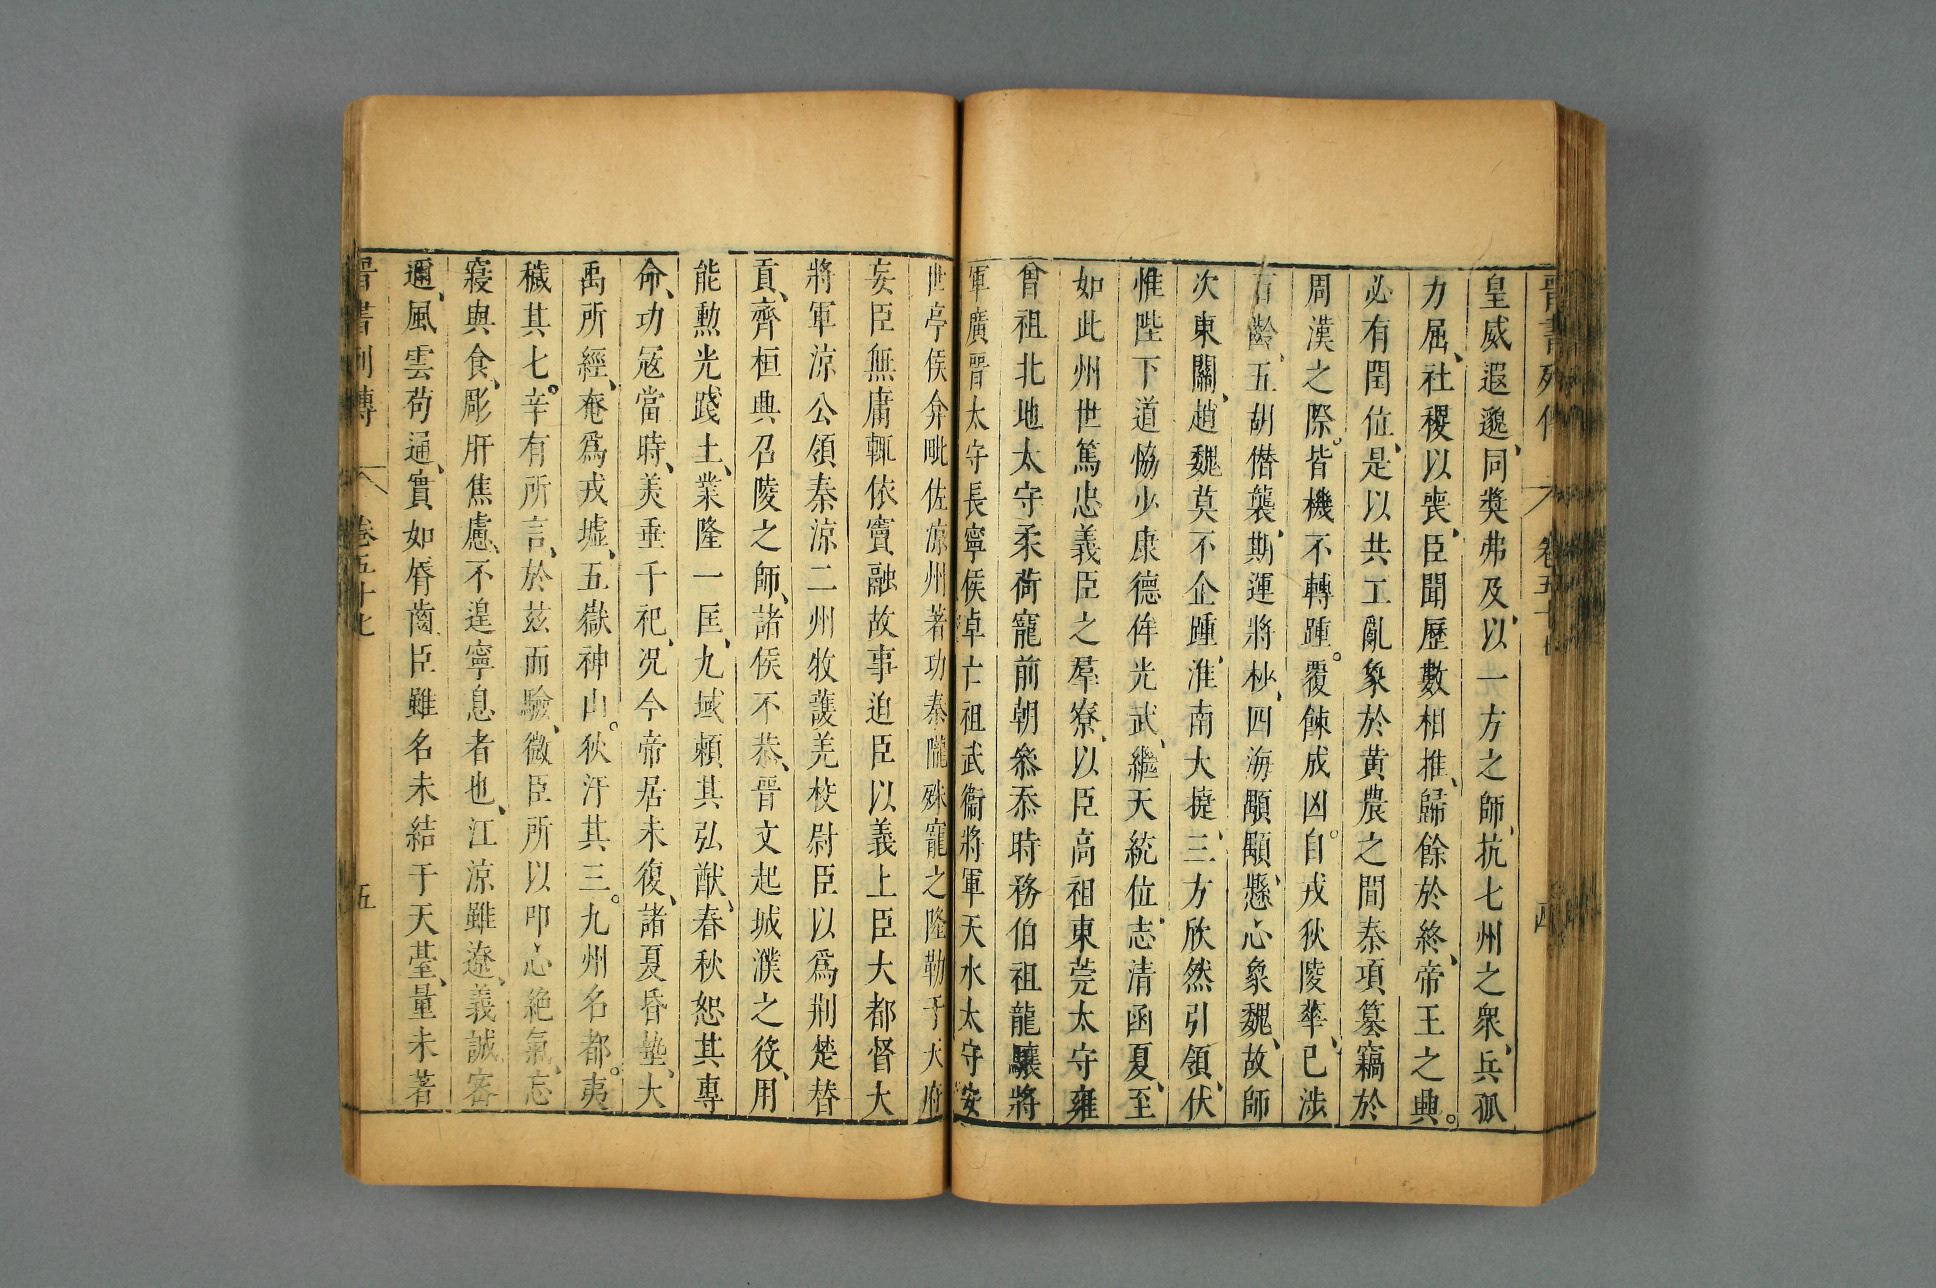 晉書列傳 卷五十七 四
皇威遐邈同獎弗及以一方之師抗七州之衆兵孤
力屈社稷以喪臣聞歷數相推歸餘於終帝王之興
必有閏位是以共工亂象於黃農之間秦項篡竊於
周漢之際皆機不轉踵覆餗成凶自戎狄陵華已涉
百齡五胡僭襲期運將杪四海顒顒懸心象魏故師
次東關趙魏莫不企踵淮南大捷三方欣然引領伏
惟陛下道恊少康德侔光武繼天統位志清函夏至
如此州世篤忠義臣之羣寮以臣高祖東莞太守雍
曾祖北地太守柔荷寵前朝叅忝時務伯祖龍驤將
軍廣晉太守長寧侯卓亡祖武衞將軍天水太守安
世亭侯弇毗佐涼州著功秦隴殊寵之隆勒于天府
妄臣無庸輒依竇融故事迫臣以義上臣大都督大
將軍涼公領秦涼二州牧護羌校尉臣以爲荆楚替
貢齊桓興召陵之師諸侯不恭晉文起城濮之役用
能勲光踐土業隆一匡九域賴其弘猷春秋恕其專
命功冠當時美垂千祀況今帝居未復諸夏昏墊大
禹所經奄爲戎墟五嶽神山狄汙其三九州名都夷
穢其七辛有所言於兹而驗微臣所以叩心絶氣忘
寢與食彫肝焦慮不遑寧息者也江涼雖遼義誠密
邇風雲苟通實如脣齒臣雖名未結于天臺量未著
晉書列傳 卷五十七 五